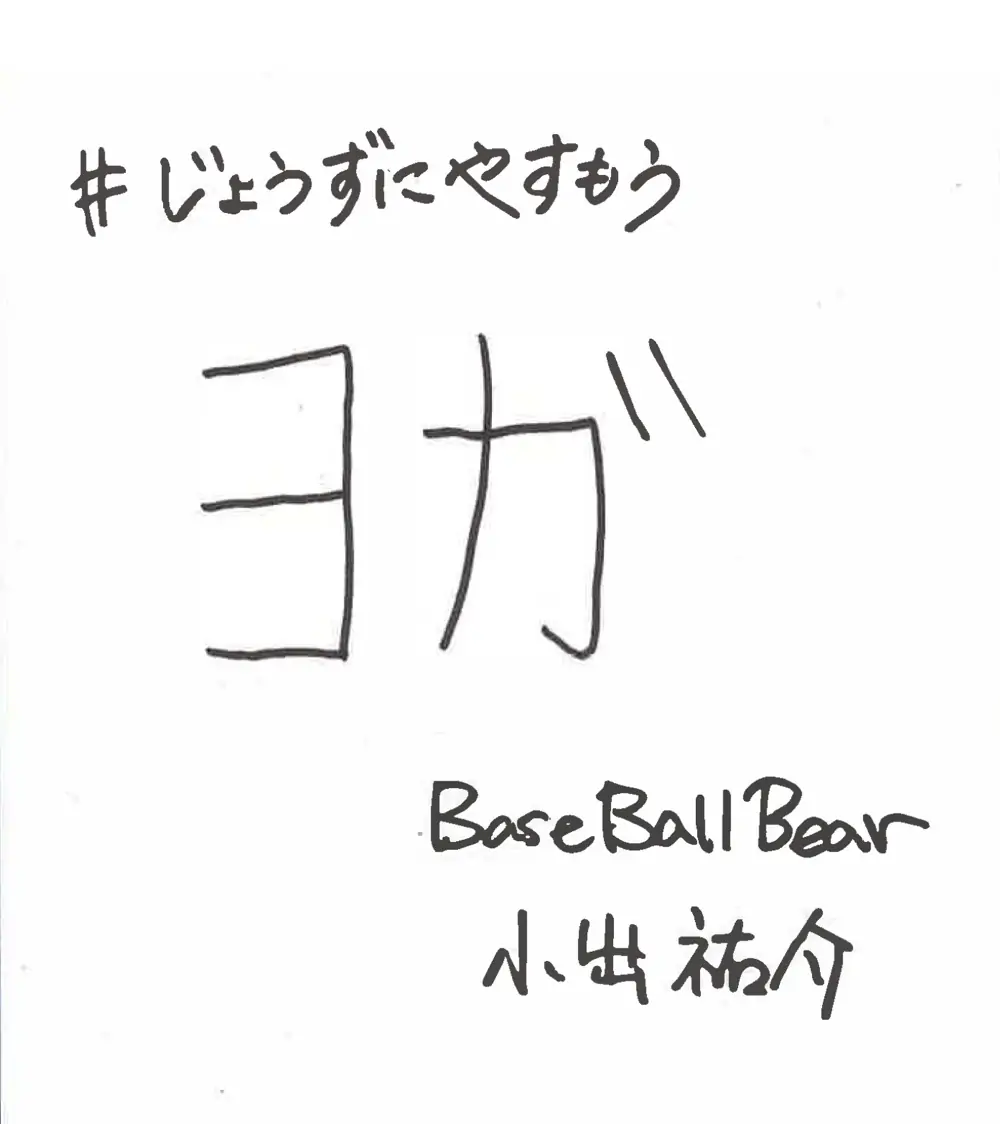 #じょうずにやすもう
ヨガ
Base Ball Bear
小出祐介